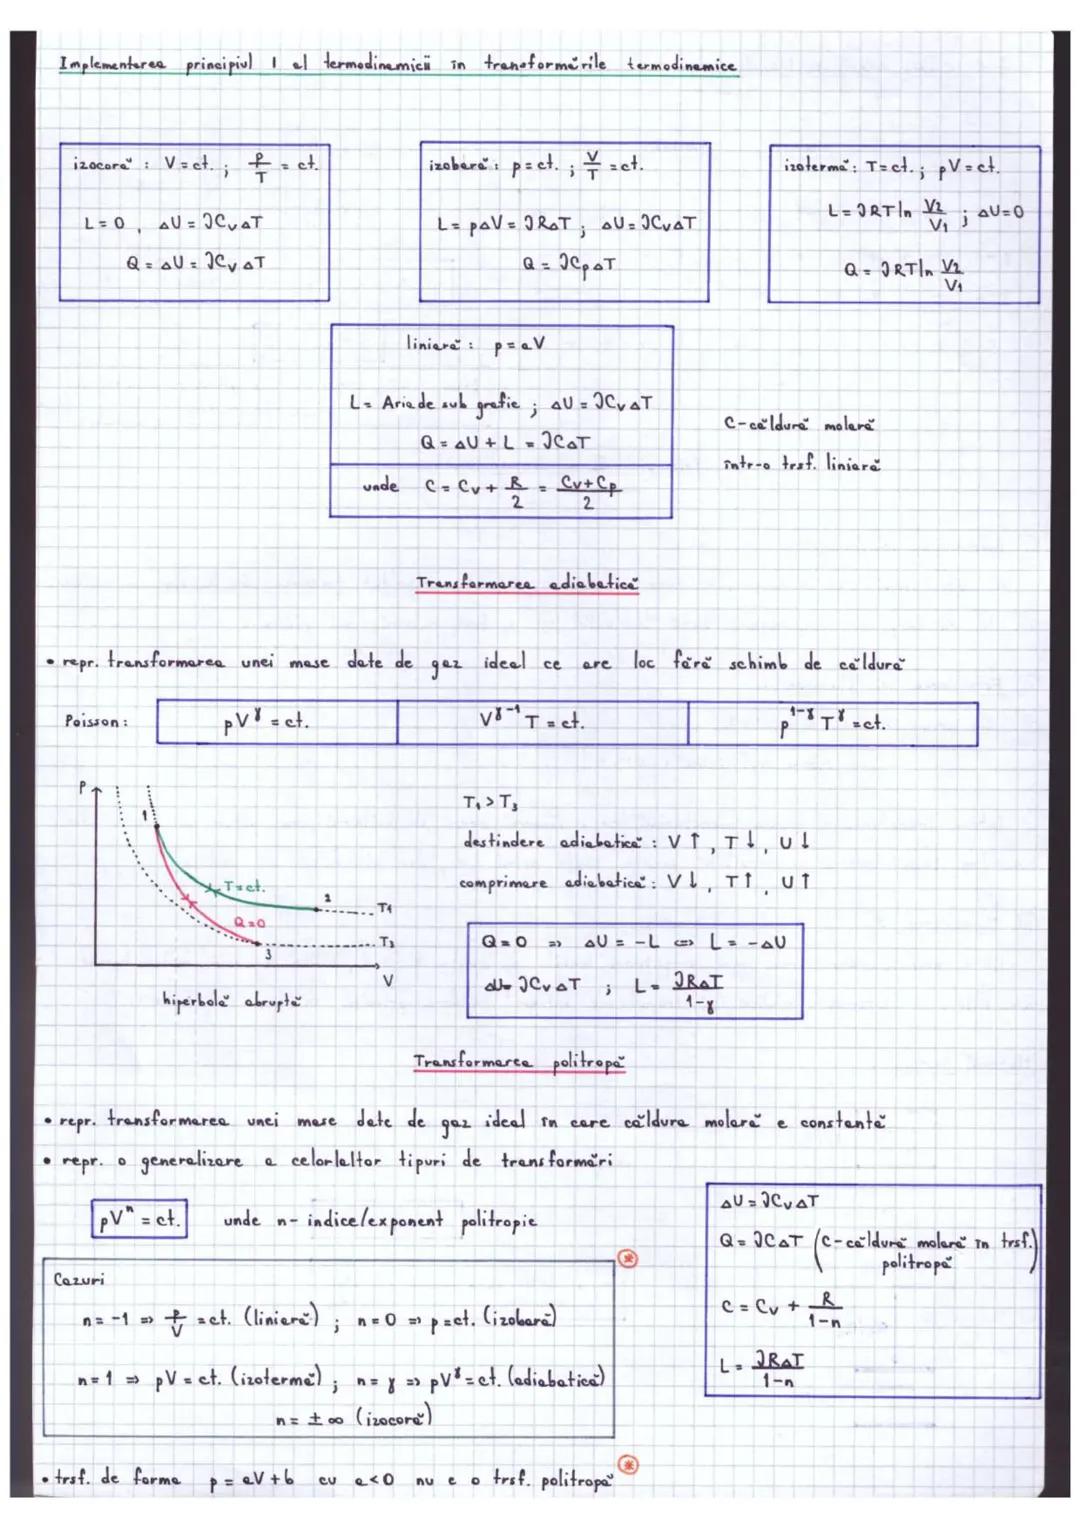 Implementarea principiul I al termodinamicii în transformările termodinamice
izocoră : V = ct. ; P/T = ct.
L = 0 , ΔU = νCvΔT
Q = ΔU = νCvΔT
izobară : p = ct. ; V/T = ct.
L = pΔV = νRΔT ; ΔU = νCvΔT
Q = νCpΔT
izotermă : T = ct. ; pV = ct.
L = νRT ln V2/V1 ; ΔU = 0
Q = νRT ln V2/V1
liniară : p = aV
L = Aria de sub grafic ; ΔU = νCvΔT
Q = ΔU + L = νCΔT
unde C = Cv + R/2 = Cv+Cp/2
C - căldură molară
într-o trsf. liniară
Transformarea adiabatică
• repr. transformarea unei mase date de gaz ideal ce are loc fără schimb de căldură
Poisson :
pV^γ = ct.
V^γ-1 T = ct.
p^1-γ T^γ = ct.
P
1
T = ct.
Q = 0
2
3
T1
T3
V
hiperbolă abruptă
T1 > T3
destindere adiabatică : V ↑ , T ↓ , U ↓
comprimare adiabatică : V ↓ , T ↑ , U ↑
Q = 0 => ΔU = -L <=> L = -ΔU
ΔU = νCvΔT ; L = νRΔT/1-γ
Transformarea politropă
• repr. transformarea unei mase date de gaz ideal în care căldura molară e constantă
• repr. o generalizare a celorlaltor tipuri de transformări
pV^n = ct. unde n - indice/exponent politropic
Cazuri
n = -1 => P/V = ct. (liniară) ; n = 0 => p = ct. (izobară)
n = 1 => pV = ct. (izotermă) ; n = γ => pV^γ = ct. (adiabatică)
n = ± ∞ (izocoră)
ΔU = νCvΔT
Q = νCΔT (C - căldură molară în trsf. politropă)
C = Cv + R/1-n
L = νRΔT/1-n
• trsf. de forma p = aV + b cu a < 0 nu e o trsf. politropă